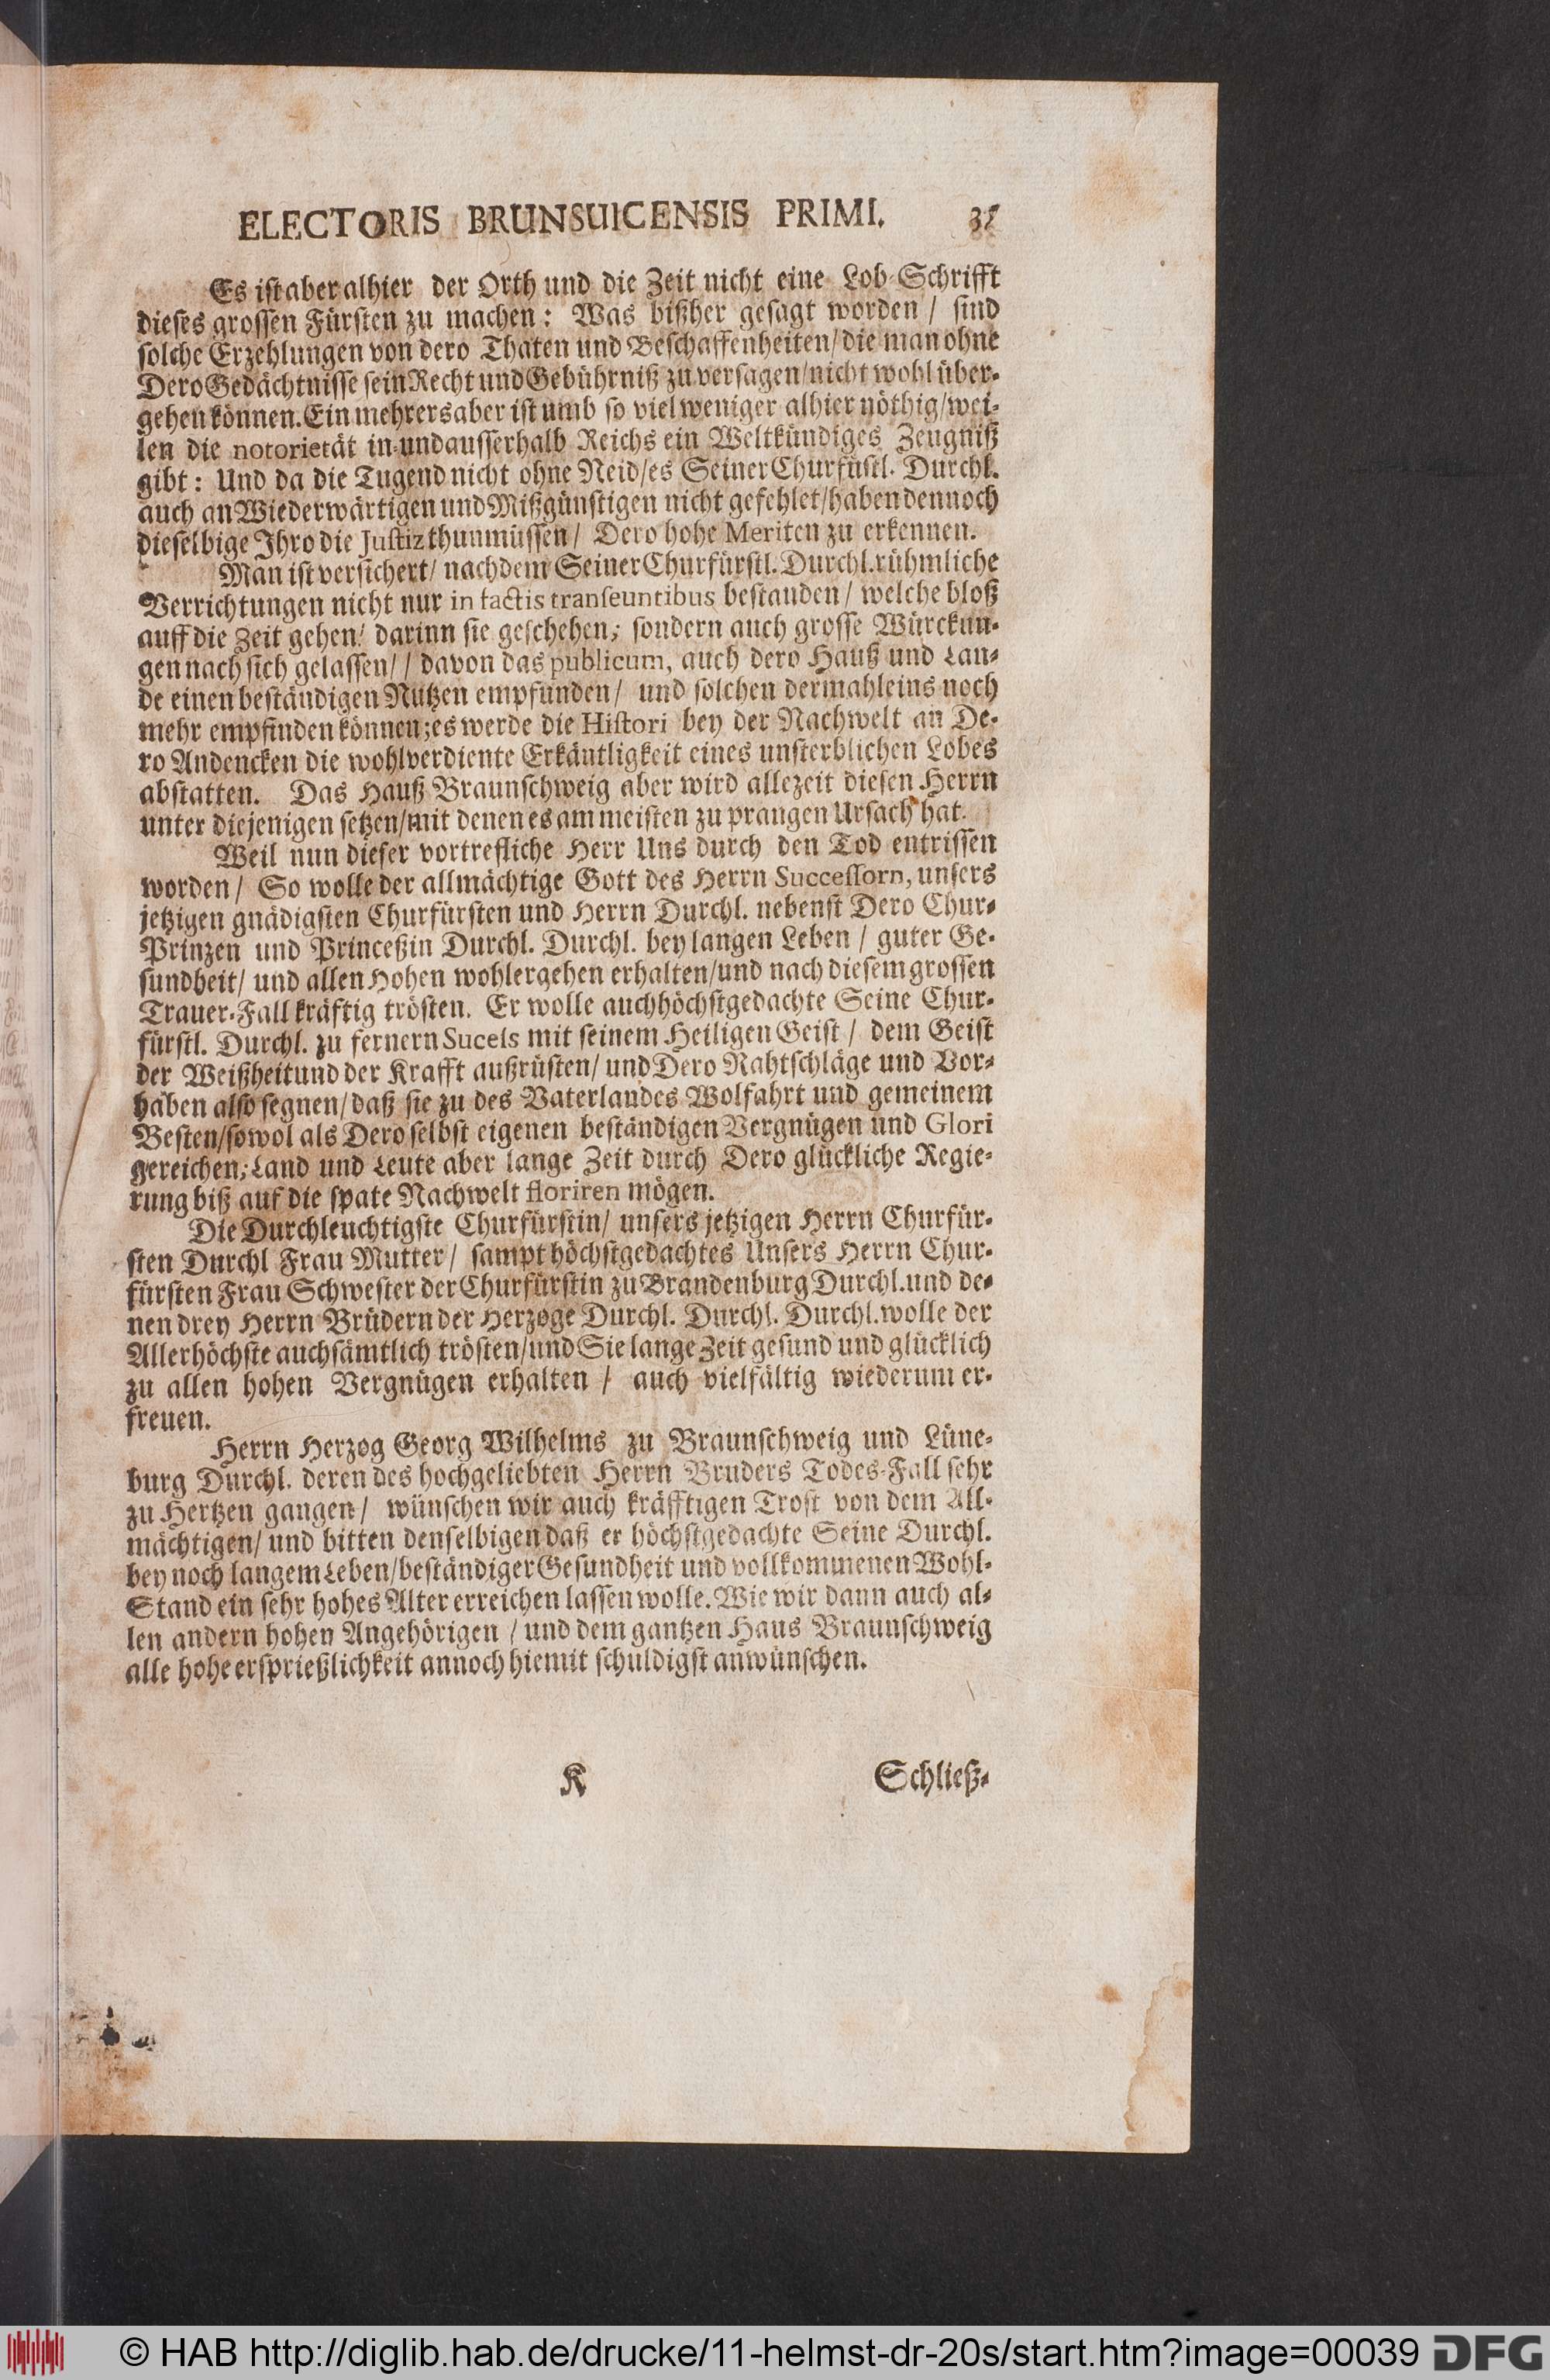 ELECTORIS BRUNSUICENSIS PRIMI.
Es ist aber alhier der Orth und die Zeit nicht eine Lob-Schrifft
dieses grossen Fürsten zu machen: Was bißher gesagt worden / sind
solche Erzehlungen von dero Thaten und Beschaffenheiten/ die man ohne
Dero Gedächtnisse sein Recht und Gebührniß zu versagen/ nicht wohl über-
gehen können. Ein mehrers aber ist umb so viel weniger alhier nöthig/ wei-
len die notorietät in- und ausserhalb Reichs ein Weltkündiges Zeugniß
gibt: Und da die Tugend nicht ohne Neid/ es Seiner Churfüstl. Durchl.
auch an Wiederwärtigen und Mißgünstigen nicht gefehlet/ haben dennoch
dieselbige Ihro die Justiz thun müssen/ Dero hohe Meriten zu erkennen.
Man ist versichert/ nachdem Seiner Churfürstl. Durchl. rühmliche
Verrichtungen nicht nur in factis transeuntibus bestanden / welche bloß
auff die Zeit gehen/ darinn sie geschehen; sondern auch grosse Würckun-
gen nach sich gelassen/ / davon das publicum, auch dero Hauß und Lan-
de einen beständigen Nutzen empfunden/ und solchen dermahleins noch
mehr empfinden können; es werde die Histori bey der Nachwelt an De-
ro Andencken die wohlverdiente Erkäntligkeit eines unsterblichen Lobes
abstatten. Das Hauß Braunschweig aber wird allezeit diesen Herrn
unter diejenigen setzen/ mit denen es am meisten zu prangen Ursach hat.
Weil nun dieser vortrefliche Herr Uns durch den Tod entrissen
worden/ So wolle der allmächtige Gott des Herrn Successorn, unsers
jetzigen gnädigsten Churfürsten und Herrn Durchl. nebenst Dero Chur-
Prinzen und Princeßin Durchl. Durchl. bey langen Leben / guter Ge-
sundheit/ und allen Hohen wohlergehen erhalten/ und nach diesem grossen
Trauer-Fall kräftig trösten. Er wolle auch höchstgedachte Seine Chur-
fürstl. Durchl. zu fernern Sucels mit seinem Heiligen Geist / dem Geist
der Weißheit und der Krafft außrüsten/ und Dero Rahtschläge und Vor-
haben also segnen/ daß sie zu des Vaterlandes Wolfahrt und gemeinem
Besten/ sowol als Dero selbst eigenen beständigen Vergnügen und Glori
gereichen; Land und Leute aber lange Zeit durch Dero glückliche Regie-
rung biß auf die spate Nachwelt floriren mögen.
Die Durchleuchtigste Churfürstin/ unsers jetzigen Herrn Churfür-
sten Durchl Frau Mutter/ sampt höchstgedachtes Unsers Herrn Chur-
fürsten Frau Schwester der Churfürstin zu Brandenburg Durchl. und de-
nen drey Herrn Brüdern der Herzoge Durchl. Durchl. Durchl. wolle der
Allerhöchste auch sämtlich trösten/ und Sie lange Zeit gesund und glücklich
zu allen hohen Vergnügen erhalten / auch vielfältig wiederum er-
freuen.
Herrn Herzog Georg Wilhelms zu Braunschweig und Lüne-
burg Durchl. deren des hochgeliebten Herrn Bruders Todes-Fall sehr
zu Hertzen gangen/ wünschen wir auch kräfftigen Trost von dem All-
mächtigen/ und bitten denselbigen daß er höchstgedachte Seine Durchl.
bey noch langem Leben/ beständiger Gesundheit und vollkommenen Wohl-
Stand ein sehr hohes Alter erreichen lassen wolle. Wie wir dann auch al-
len andern hohen Angehörigen / und dem gantzen Haus Braunschweig
alle hohe ersprießlichkeit annoch hiemit schuldigst anwünschen.
K Schließ-
© HAB http://diglib.hab.de/drucke/11-helmst-dr-20s/start.htm?image=00039 DFG